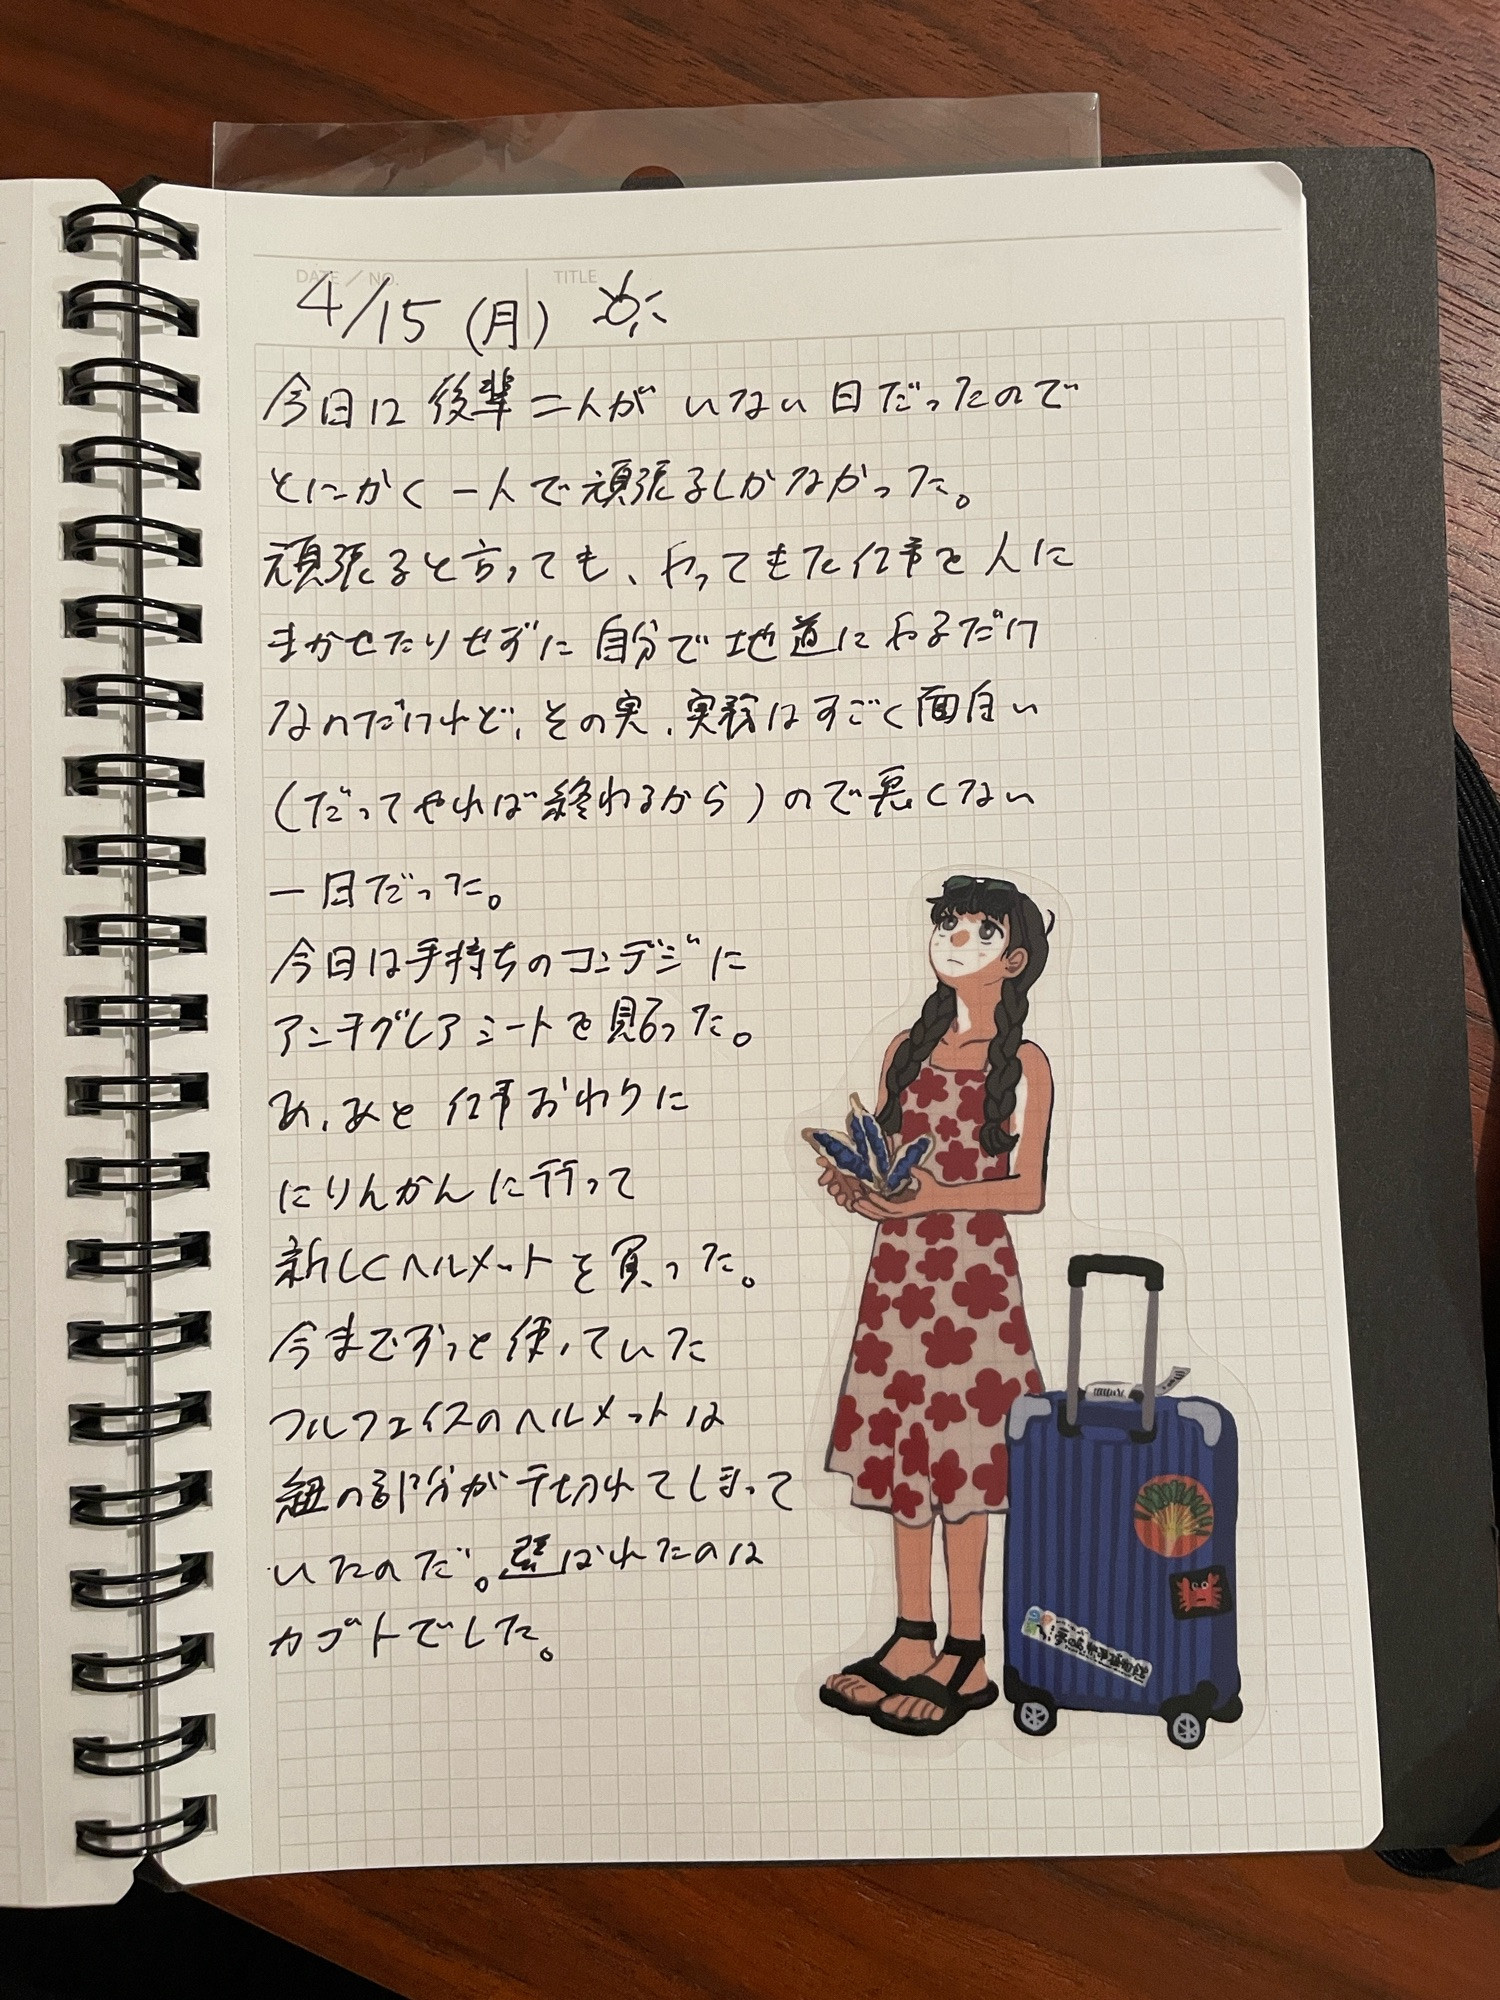 DATE / NO.
TITLE
4/15 (月)
今日は後輩二人がいない日だったので
とにかく一人で頑張るしかなかった。
頑張ると言っても、やってきた仕事を人に
まかせたりせずに自分で地道にやるだけ
なのだけれど、その実、実務はすごく面白い
(だってやれば終わるから)ので悪くない
一日だった。
今日は手持ちのコンデジに
アンチグレアシートを貼った。
あ、あと仕事おわりに
にりんかんに行って
新しくヘルメットを買った。
今までずっと使っていた
フルフェイスのヘルメットは
紐の部分が千切れてしまって
いたのだ。選ばれたのは
カブトでした。